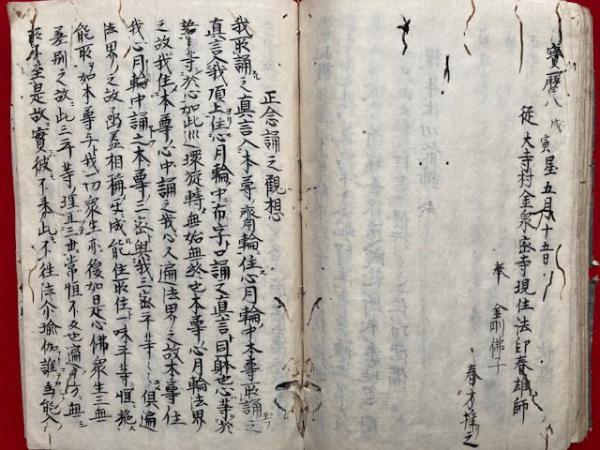 寳暦八戊寅星五月十五日
從大寺村金泉密寺現住法印春雄師
奉 金剛佛子
春方拝之
正念誦之觀想
我所誦之真言入本尊齋輪住心月輪中本尊所誦之
真言入我頂上住心月輪中布字口誦之真言
等於心如此巡環旋轉無始無終也本尊心月輪法界
之故我住本尊心中誦之我心又遍法界之故本尊住
我心月輪中誦之本尊三密與我三密平等〻〻俱遍
法界之故函蓋相稱實成能住所住一味平等恒施
能所如本尊与我一切衆生亦復如是心佛衆生三無
差別之故此三平等理亘三世常恒不
至是故實彼不来此不往法介瑜伽誰為能入